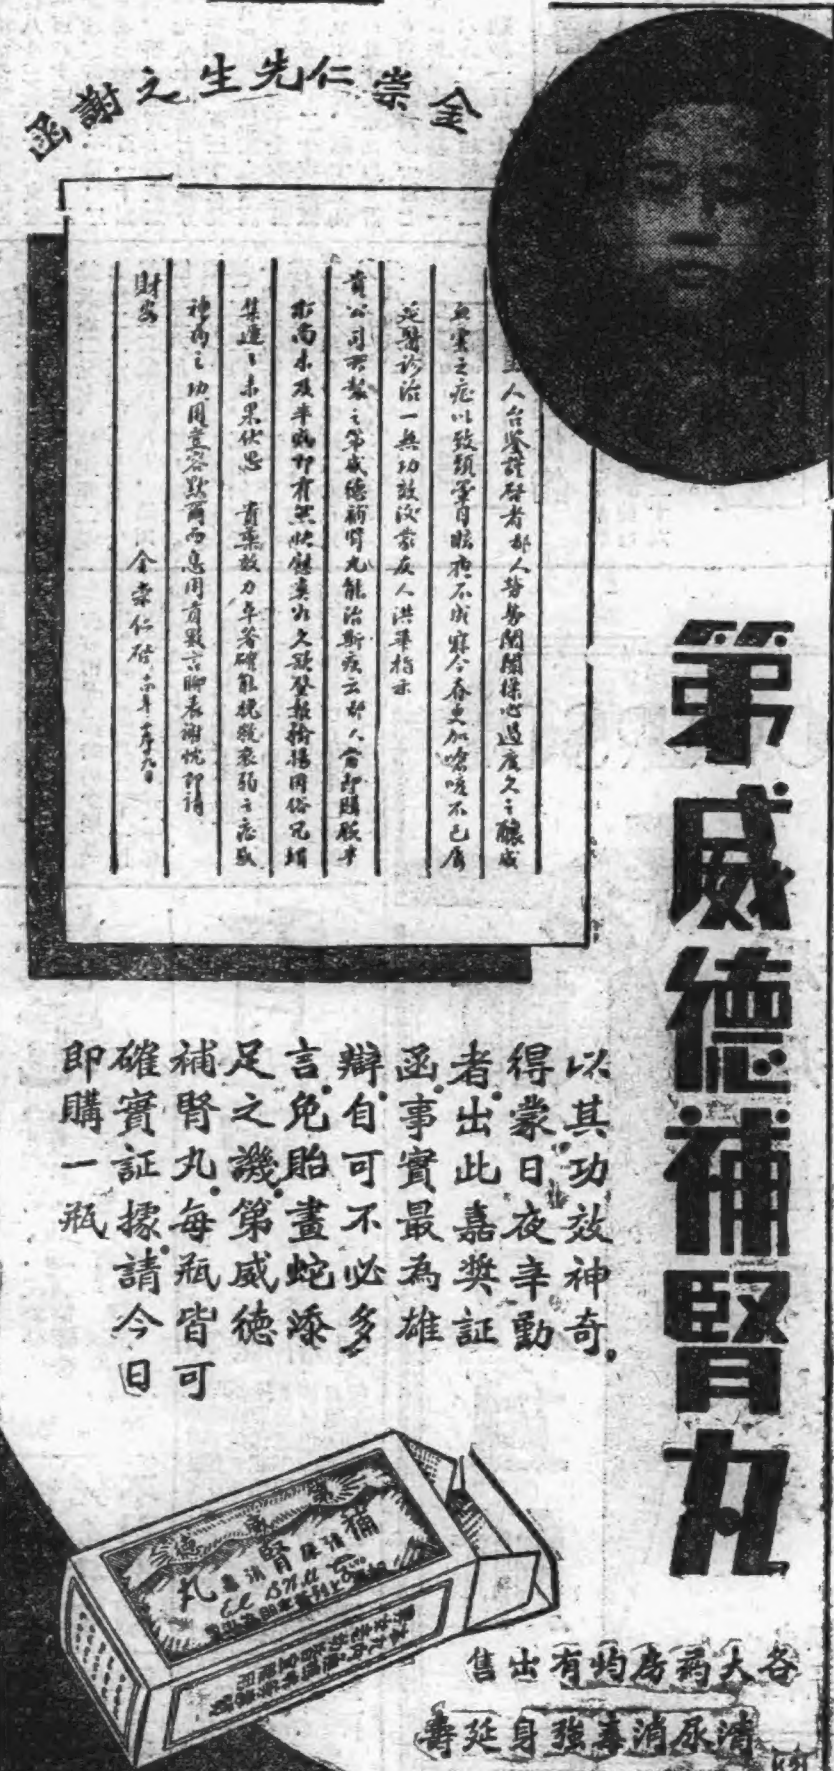 金崇仁先生之謝函
主人台鑒謹啓者鄙人勞勞閱閱操心過度久之釀成
血虛之症以致頭暈目眩夜不成寐今春更加嗆咳不已屢
延醫診治一無功效後蒙友人洪畢指示
貴公司所製之第威德補腎丸能治斯疾云鄙人當即購服半
打尚未及半瓶即有無快慰莫似久欲登報揄揚因俗冗蝟
集遲遲未果伏思 貴藥效力卓著確能挽救衰弱之症
神為之功用豈容默爾而息用貢數言聊表謝忱即請
財安
金崇仁啓
第威德補腎丸
以其功效神奇。
得蒙日夜辛勤
者。出此嘉獎証
函。事實最為雄
辯。自可不必多
言。免貽畫蛇添
足之譏。第威德
補腎丸。每瓶皆可
確實証據。請今日
即購一瓶
第威德
補腎丸
清尿消毒
各大葯房均有出售
清尿消毒強身延壽